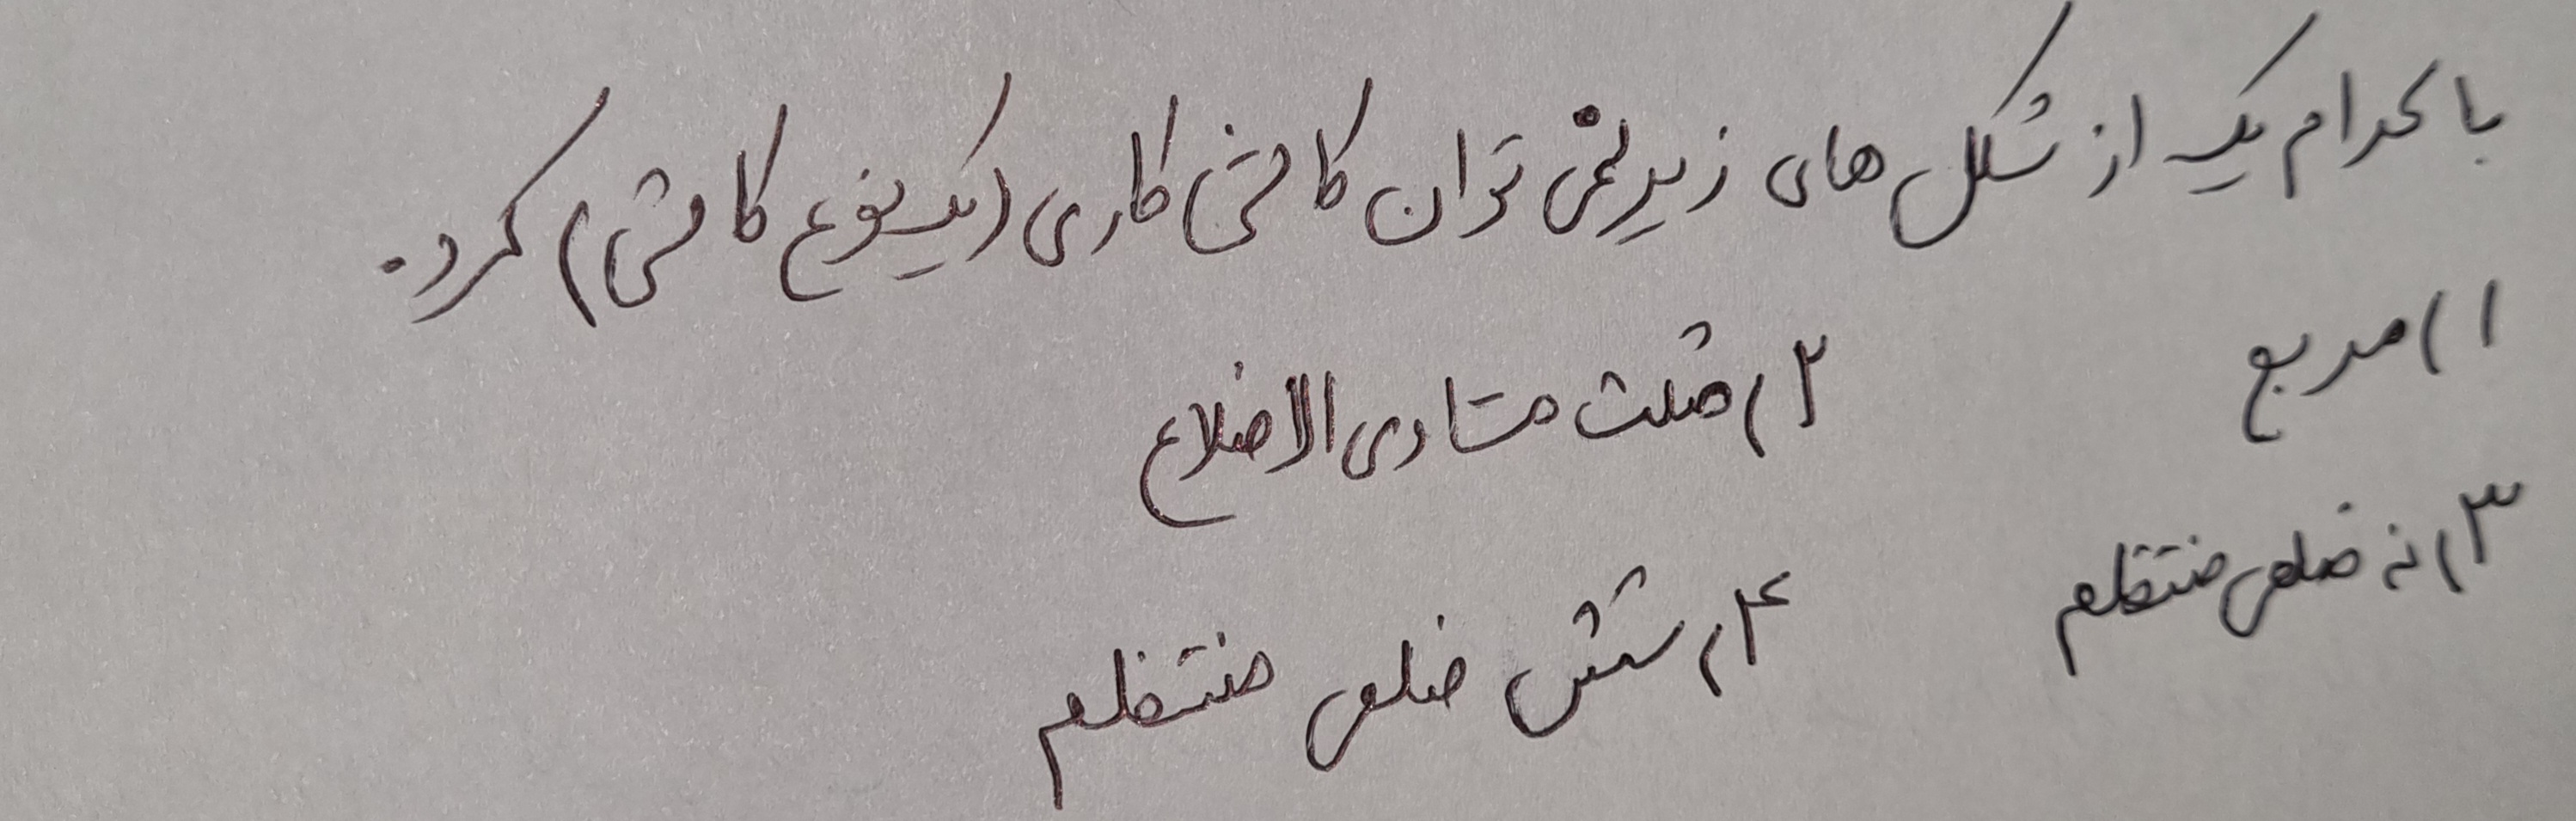 با کدام یک از شکل های زیر نمی توان کاشی کاری (یک نوع کاشی) کرد.
۱) مربع ۲) مثلث متساوی الاضلاع
۳) نه ضلعی منتظم
۴) شش ضلعی منتظم